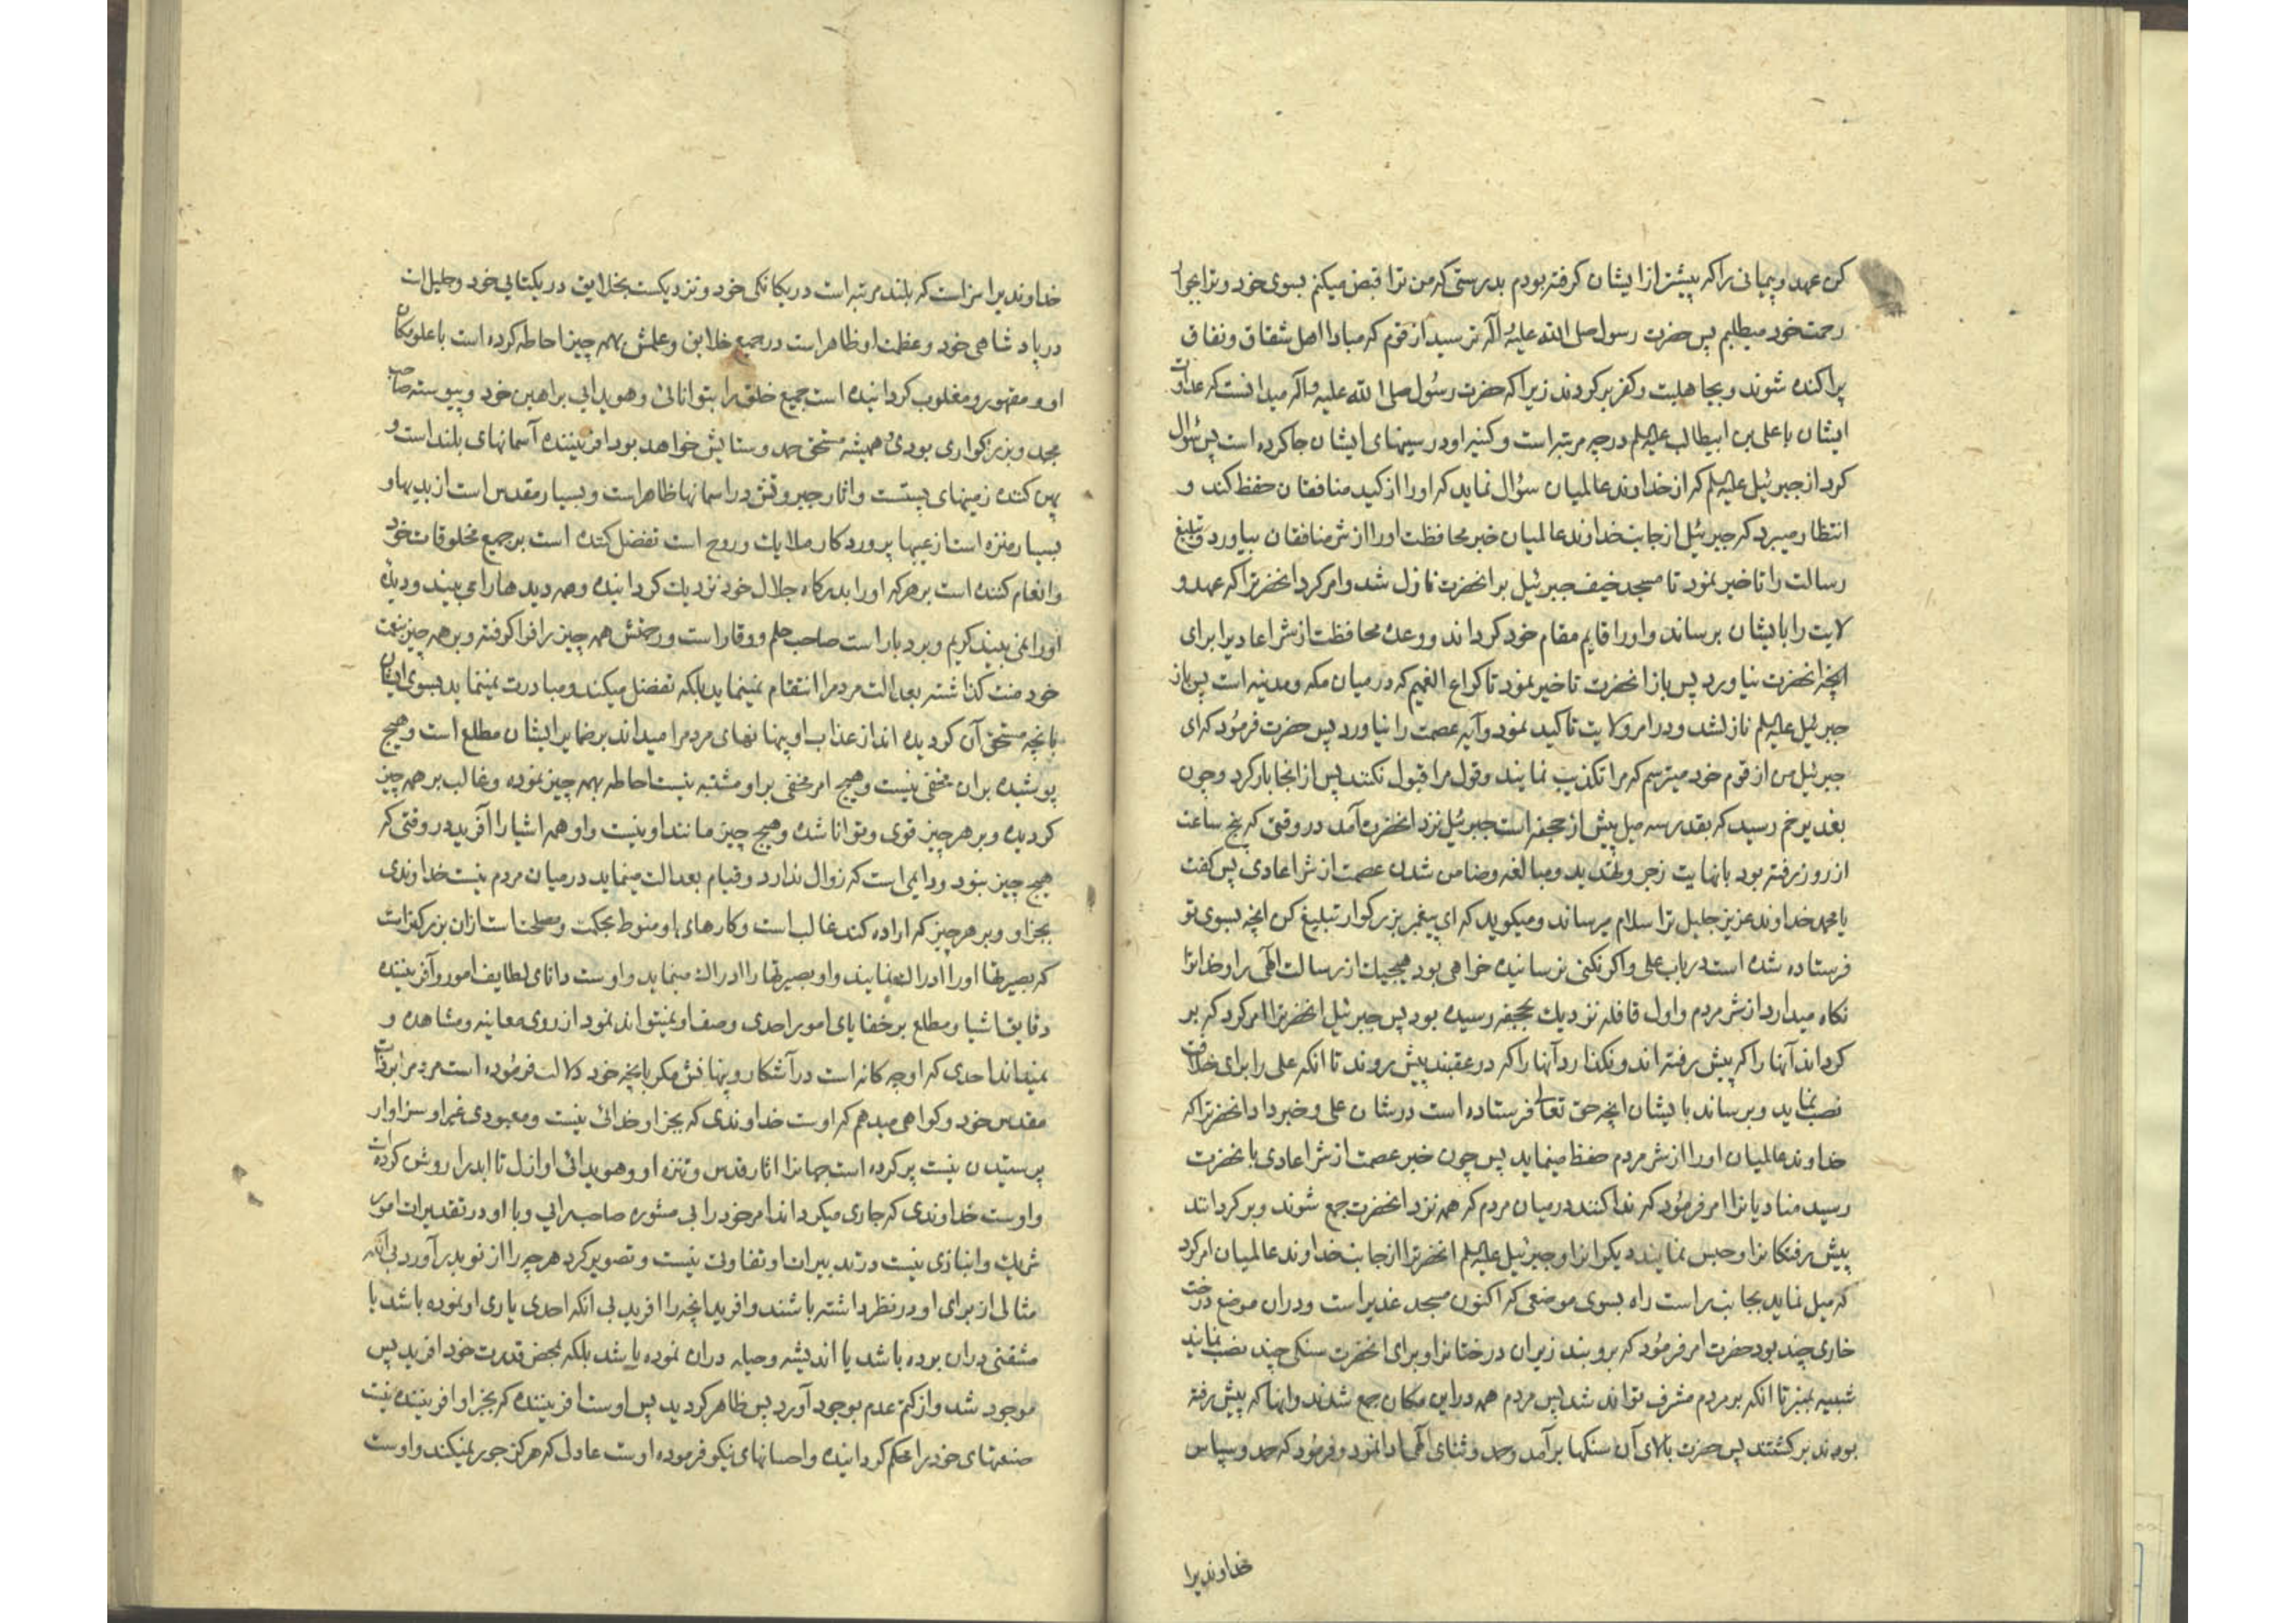 کن عهد و پیمانی را که پیشتر از ایشان کرفته بودم بدرستی که من ترا قبض میکنم بسوی خود و ترا بجوار
رحمت خود میطلبم پس حضرت رسول صلی الله علیه و آله ترسید از قوم که مبادا اهل شقاق و نفاق
پراکنده شوند و بجاهلیت و کفر بر کردند زیرا که حضرت رسول صلی الله علیه و آله میدانست که عداوت
ایشان با علی بن ابیطالب علیه السلم در چه مرتبه است و کینه او در سینهای ایشان جا کرده است پس سؤال
کرد از جبرئیل علیه السلم که از خداوند عالمیان سؤال نماید که او را از کید منافقان حفظ کند و
انتظار میبرد که جبرئیل از جانب خداوند عالمیان خبر محافظت او را از شر منافقان بیاورد و تبلیغ
رسالت را تاخیر نمود تا مسجد خیف جبرئیل بر انحضرت نازل شد و امر کرد انحضرترا که عهد و
لایت را بایشان برساند و او را قایم مقام خود کرداند و وعده محافظت از شر اعادیرا برای
انچه انحضرت نیاورد پس باز انحضرت تاخیر نمود تا کراع الغمیم که در میان مکه و مدینه است پس باز
جبرئیل علیه السلم نازلشد و در امر ولایت تاکید نمود و آیه عصمت را نیاورد پس حضرت فرمود که ای
جبرئیل من از قوم خود میترسم که مرا تکذیب نمایند و قول مرا قبول نکنند پس از انجا بار کرد و چون
بغدیر خم رسید که بقدر سه میل پیش از جحفه است جبرئیل نزد انحضرت آمد در وقتی که پنج ساعت
از روز رفته بود بانهایت زجر و تهدید و مبالغه و ضامن شدن عصمت از شر اعادی پس کفت
یا محمد خداوند عزیز جلیل ترا سلام میرساند و میکوید که ای پیغمبر بزرکوار تبلیغ کن انچه بسوی تو
فرستاده شده است در باب علی و اکر نکنی نرسانیده خواهی بود هیچیك از رسالت الهی را و خدا ترا
نکاه میدارد از شر مردم و اول قافله نزدیك بجحفه رسیده بود پس جبرئیل انحضرترا امر کرد که بر
کرداند آنها را که پیش رفته اند و نکذارد آنها را که در عقبند پیش روند تا انکه علی را برای خلافت
نصب نماید و برساند بایشان انچه حق تعالی فرستاده است در شان علی و خبر داد انحضرترا که
خداوند عالمیان او را از شر مردم حفظ مینماید پس چون خبر عصمت از شر اعادی بانحضرت
رسید منادیانرا امر فرمود که ندا کنند در میان مردم که همه نزد انحضرت جمع شوند و بر کردانند
پیش رفتکانرا و حبس نمایند دیکرانرا و جبرئیل علیه السلم انحضرترا از جانب خداوند عالمیان امر کرد
که میل نماید بجانب راست راه بسوی موضعی که اکنون مسجد غدیر است و در ان موضع درخت
خاری چند بود حضرت امر فرمود که بروبند زیر ان درختانرا و برای انحضرت سنکی چند نصب نمایند
شبیه بمنبر تا انکه بر مردم مشرف تواند شد پس مردم همه در این مکان جمع شدند و انها که پیش رفته
بودند برکشتند پس حضرت بالای آن سنکها برآمد و حمد و ثنای الهی ادا نمود و فرمود که حمد و سپاس
خداوندیرا
خداوندیرا سزاست که بلند مرتبه است در یکانکی خود و نزدیکست بخلایق در یکتایی خود و جلیل است
در پادشاهی خود و عظمت او ظاهر است در جمیع خلایق و علمش بهمه چیز احاطه کرده است با علو مکان
او و مقهور و مغلوب کردانیده است جمیع خلق را بتوانائی و هویدایی براهین خود و پیوسته صاحب
مجد و بزرکواری بوده و همیشه مستحق حمد و ستایش خواهد بود افریننده آسمانهای بلند است و
پهن کننده زمینهای پستست و اثار جبروتش در اسمانها ظاهر است و بسیار مقدس است از بدیها و
بسیار منزه است از عیبها پروردکار ملایك و روح است تفضل کننده است بر جمیع مخلوقات خود
و انعام کننده است بر هر که او را بدرکاه جلال خود نزدیك کردانیده و همه دیدها را می بیند و دیده
او را نمی بیند کریم و بردبار است صاحب حلم و وقار است و رحمتش همه چیز را فرا کرفته و بر همه چیز بنعمت
خود منت کذاشته بعدالت مردم را انتقام نمینماید بلکه تفضل میکند و مبادرت نمینماید بسوی ایشان
بانچه مستحق آن کردیده اند از عذاب او پنهانهای مردم را میداند بر ضمایر ایشان مطلع است و هیچ
پوشیده بر ان مخفی نیست و هیچ امر مخفی بر او مشتبه نیست احاطه بهمه چیز نموده و غالب بر همه چیز
کردیده و بر هر چیز قوی و توانا شده و هیچ چیز مانند او نیست و او همه اشیا را آفرید در وقتی که
هیچ چیز نبود و دایمی است که زوال ندارد و قیام بعدالت مینماید در میان مردم نیست خداوندی
بجز او و بر هر چیز که اراده کند غالب است و کارهای او منوط بحکمت و مصلحتست از ان بزرکتر است
که بصیرتها او را ادراك نمایند و او بصیرتها را ادراك مینماید و اوست دانای لطایف امور و آفریننده
دقایق اشیا و مطلع بر خفایای امور احدی وصف او نمیتواند نمود از روی معاینه و مشاهده و
نمیداند احدی که او چه کانه است در آشکار و پنهانش مکر بانچه خود دلالت فرموده است مردم را بر ذات
مقدس خود و کواهی میدهم که اوست خداوندی که بجز او خدائی نیست و معبودی غیر او سزاوار
پرستیدن نیست پر کرده است جهانرا اثار قدس و تنزه او و هویدائی او ازل تا ابد را روشن کرده است
و اوست خداوندی که جاری میکرداند امر خود را بی مشوره صاحب رائی و با او در تقدیرات امور
شریك و انبازی نیست و در تدبیران او تفاوت نیست و تصویر کرد هر چه را از نو پدید آورد بی انکه
مثالی از برای او در نظر داشته باشند و افرید انچه را افرید بی انکه احدی یاری او نموده باشد یا
مشقتی در ان بوده باشد یا اندیشه و حیله در ان نموده باشد بلکه بمحض قدرت خود افرید پس
موجود شد و از کتم عدم بوجود آورد پس ظاهر کردید پس اوست افریننده که بجز او افریننده نیست
صنعتهای خود را محکم کردانیده و احسانهای نیکو فرموده اوست عادل که هرکز جور نمیکند و اوست